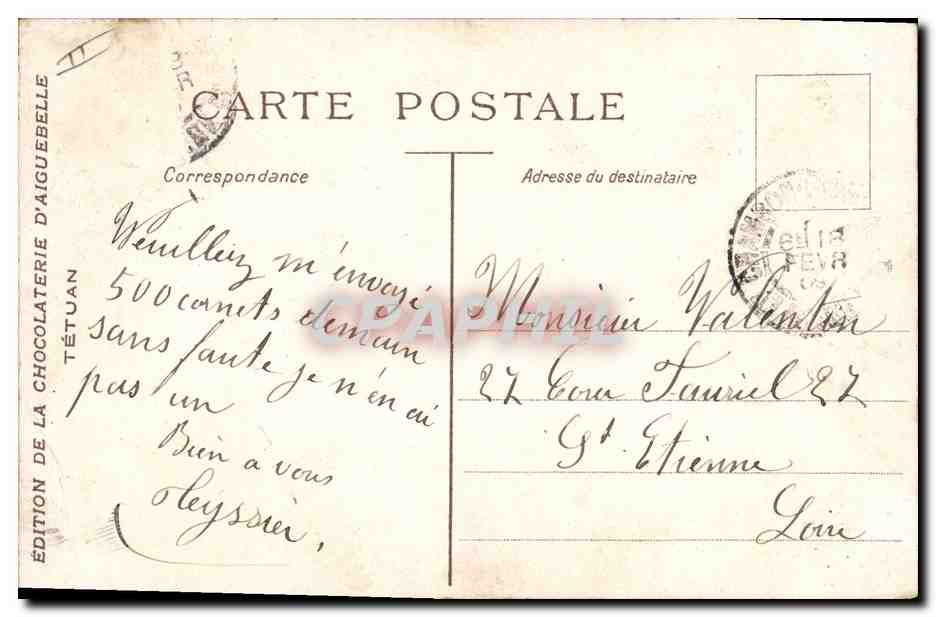 CARTE POSTALE
Correspondance
Adresse du destinataire
Veuillez m'envoyé
500 carnets demain
sans faute je n'en ai
pas un
Bien a vous
Heyssier,
Monsieur Valentin
27 Cour Fauriel 27
St Etienne
Loire
18
FEVR
ÉDITION DE LA CHOCOLATERIE D'AIGUEBELLE
TÉTUAN
CPAPHIL